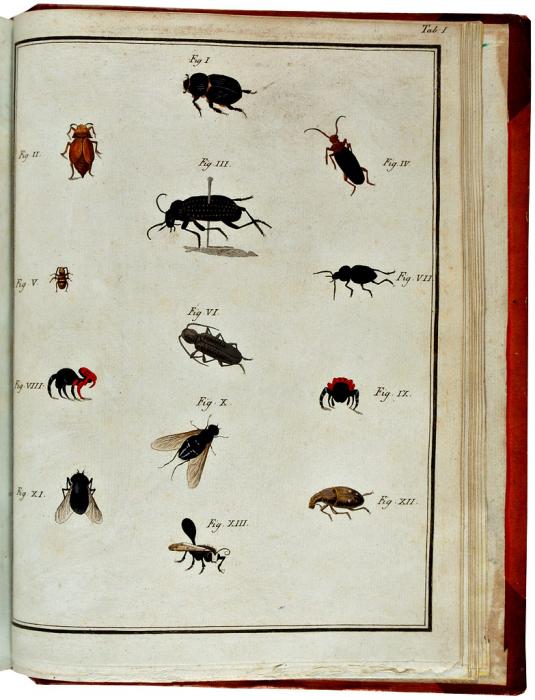 Tab. I
Fig. I
Fig. II.
Fig. III.
Fig. IV.
Fig. V.
Fig. VII
Fig. VI.
Fig. VIII.
Fig. IX.
Fig. X.
Fig. XI.
Fig. XII.
Fig. XIII.